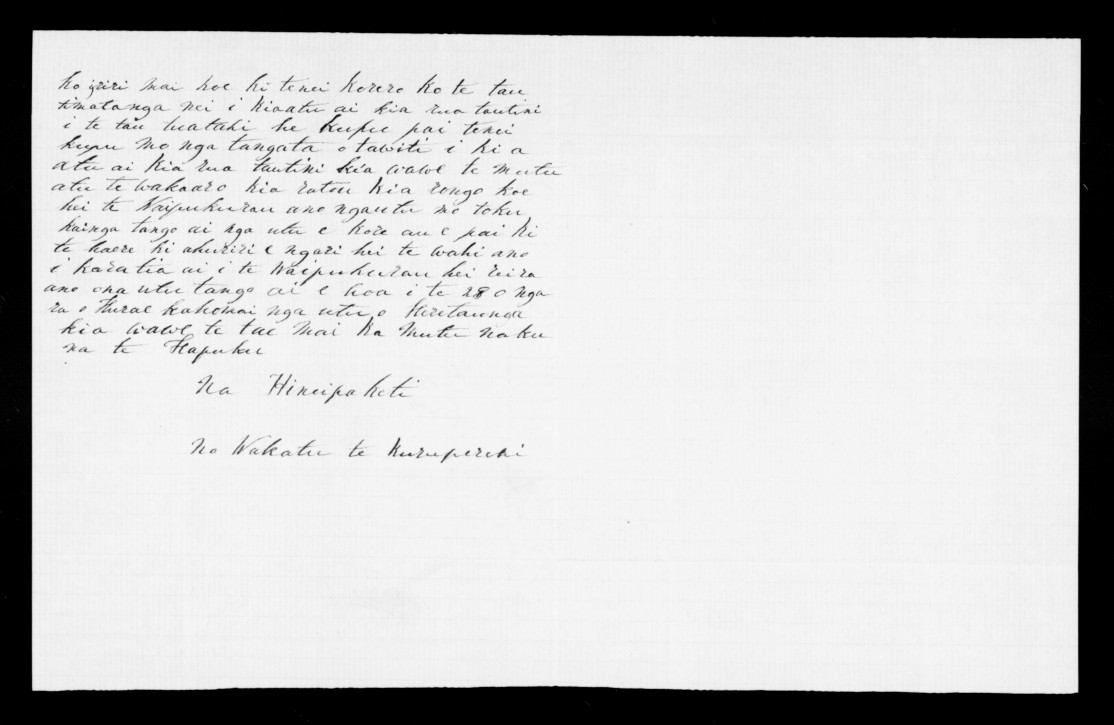 ko iriri mai koe ki tenei korero ko te tau
timatanga nei i kiaatu ai kia rua tautini
i te tau tuatahi he kupu pai tenei
kupu mo nga tangata o tawiti i ki a
atu ai kia rua tautini kia wawe te mutu
atu te wakaaro kia ratou kia rongo koe
hei te Waipukurau ano ngautu mo toku
kainga tango ai nga utu e kore au e pai ki
te haere ki ahuriri e ngari hei te wahi ano
i karatia ai i te Waipukurau hei reira
ano ona utu tango ai e hoa i te 28 o nga
ra o Hurae kahomai nga utu o Heretaunga
kia wawe te tae mai ka mutu naku
na te Hapuku
Na Hineipaketi
No Wakatu te Kuruperehi